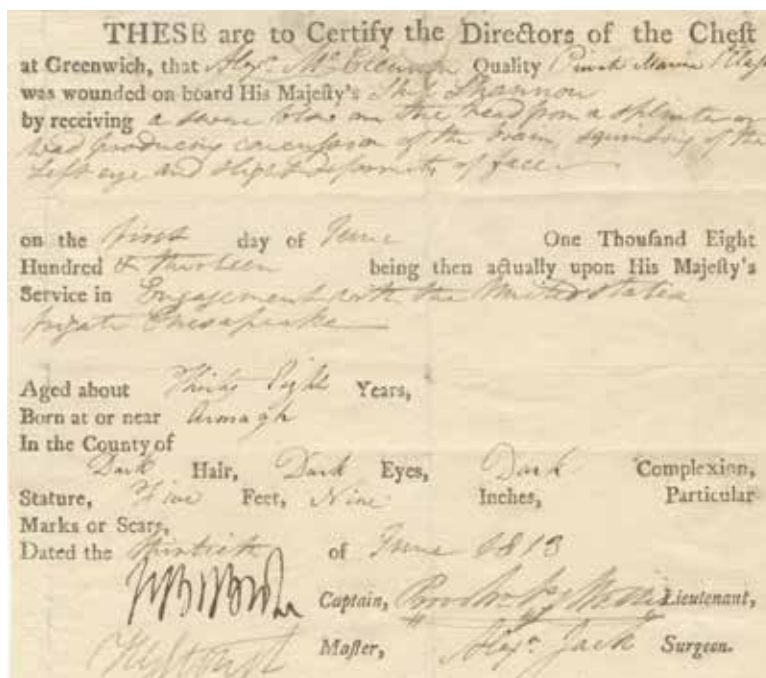 THESE are to Certify the Directors of the Cheſt
at Greenwich, that Alexr. Quality Marine
was wounded on board His Majeſty's Ship Shannon
by receiving a severe blow on the head from a splinter
producing concussion of the brain squinting of the
left eye and slight deformity of face
on the first day of June One Thouſand Eight
Hundred & thirteen being then actually upon His Majeſty's
Service in Engagement with the United States
frigate Chesapeake
Aged about Thirty Eight Years,
Born at or near Armagh
In the County of
Dark Hair, Dark Eyes, Dark Complexion,
Stature, Five Feet, Nine Inches, Particular
Marks or Scars,
Dated the thirtieth of June 1813
Captain, Lieutenant,
Maſter, Alexr. Jack Surgeon.